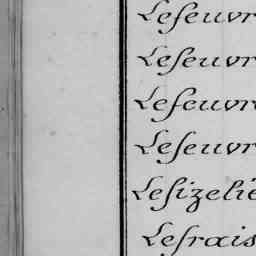 Lefeuvr
Lefeuvr
Lefeuvr
Lefeuvr
Lefizelie
Lefrais